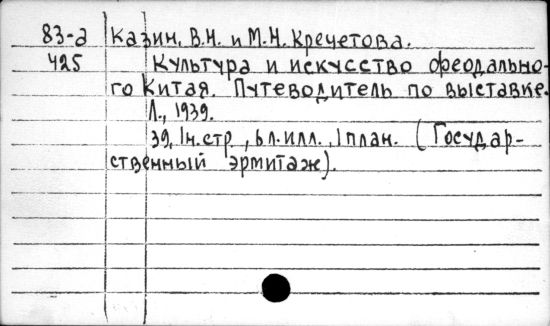 83-а Казин, В.Н. и М.Н. Кречетова.
425 Культура и искусство феодально-
го Китая. Путеводитель по выставке.
Л., 1939.
39, 1н.стр., 6 л.илл., 1 план. (Государ-
ственный эрмитаж).